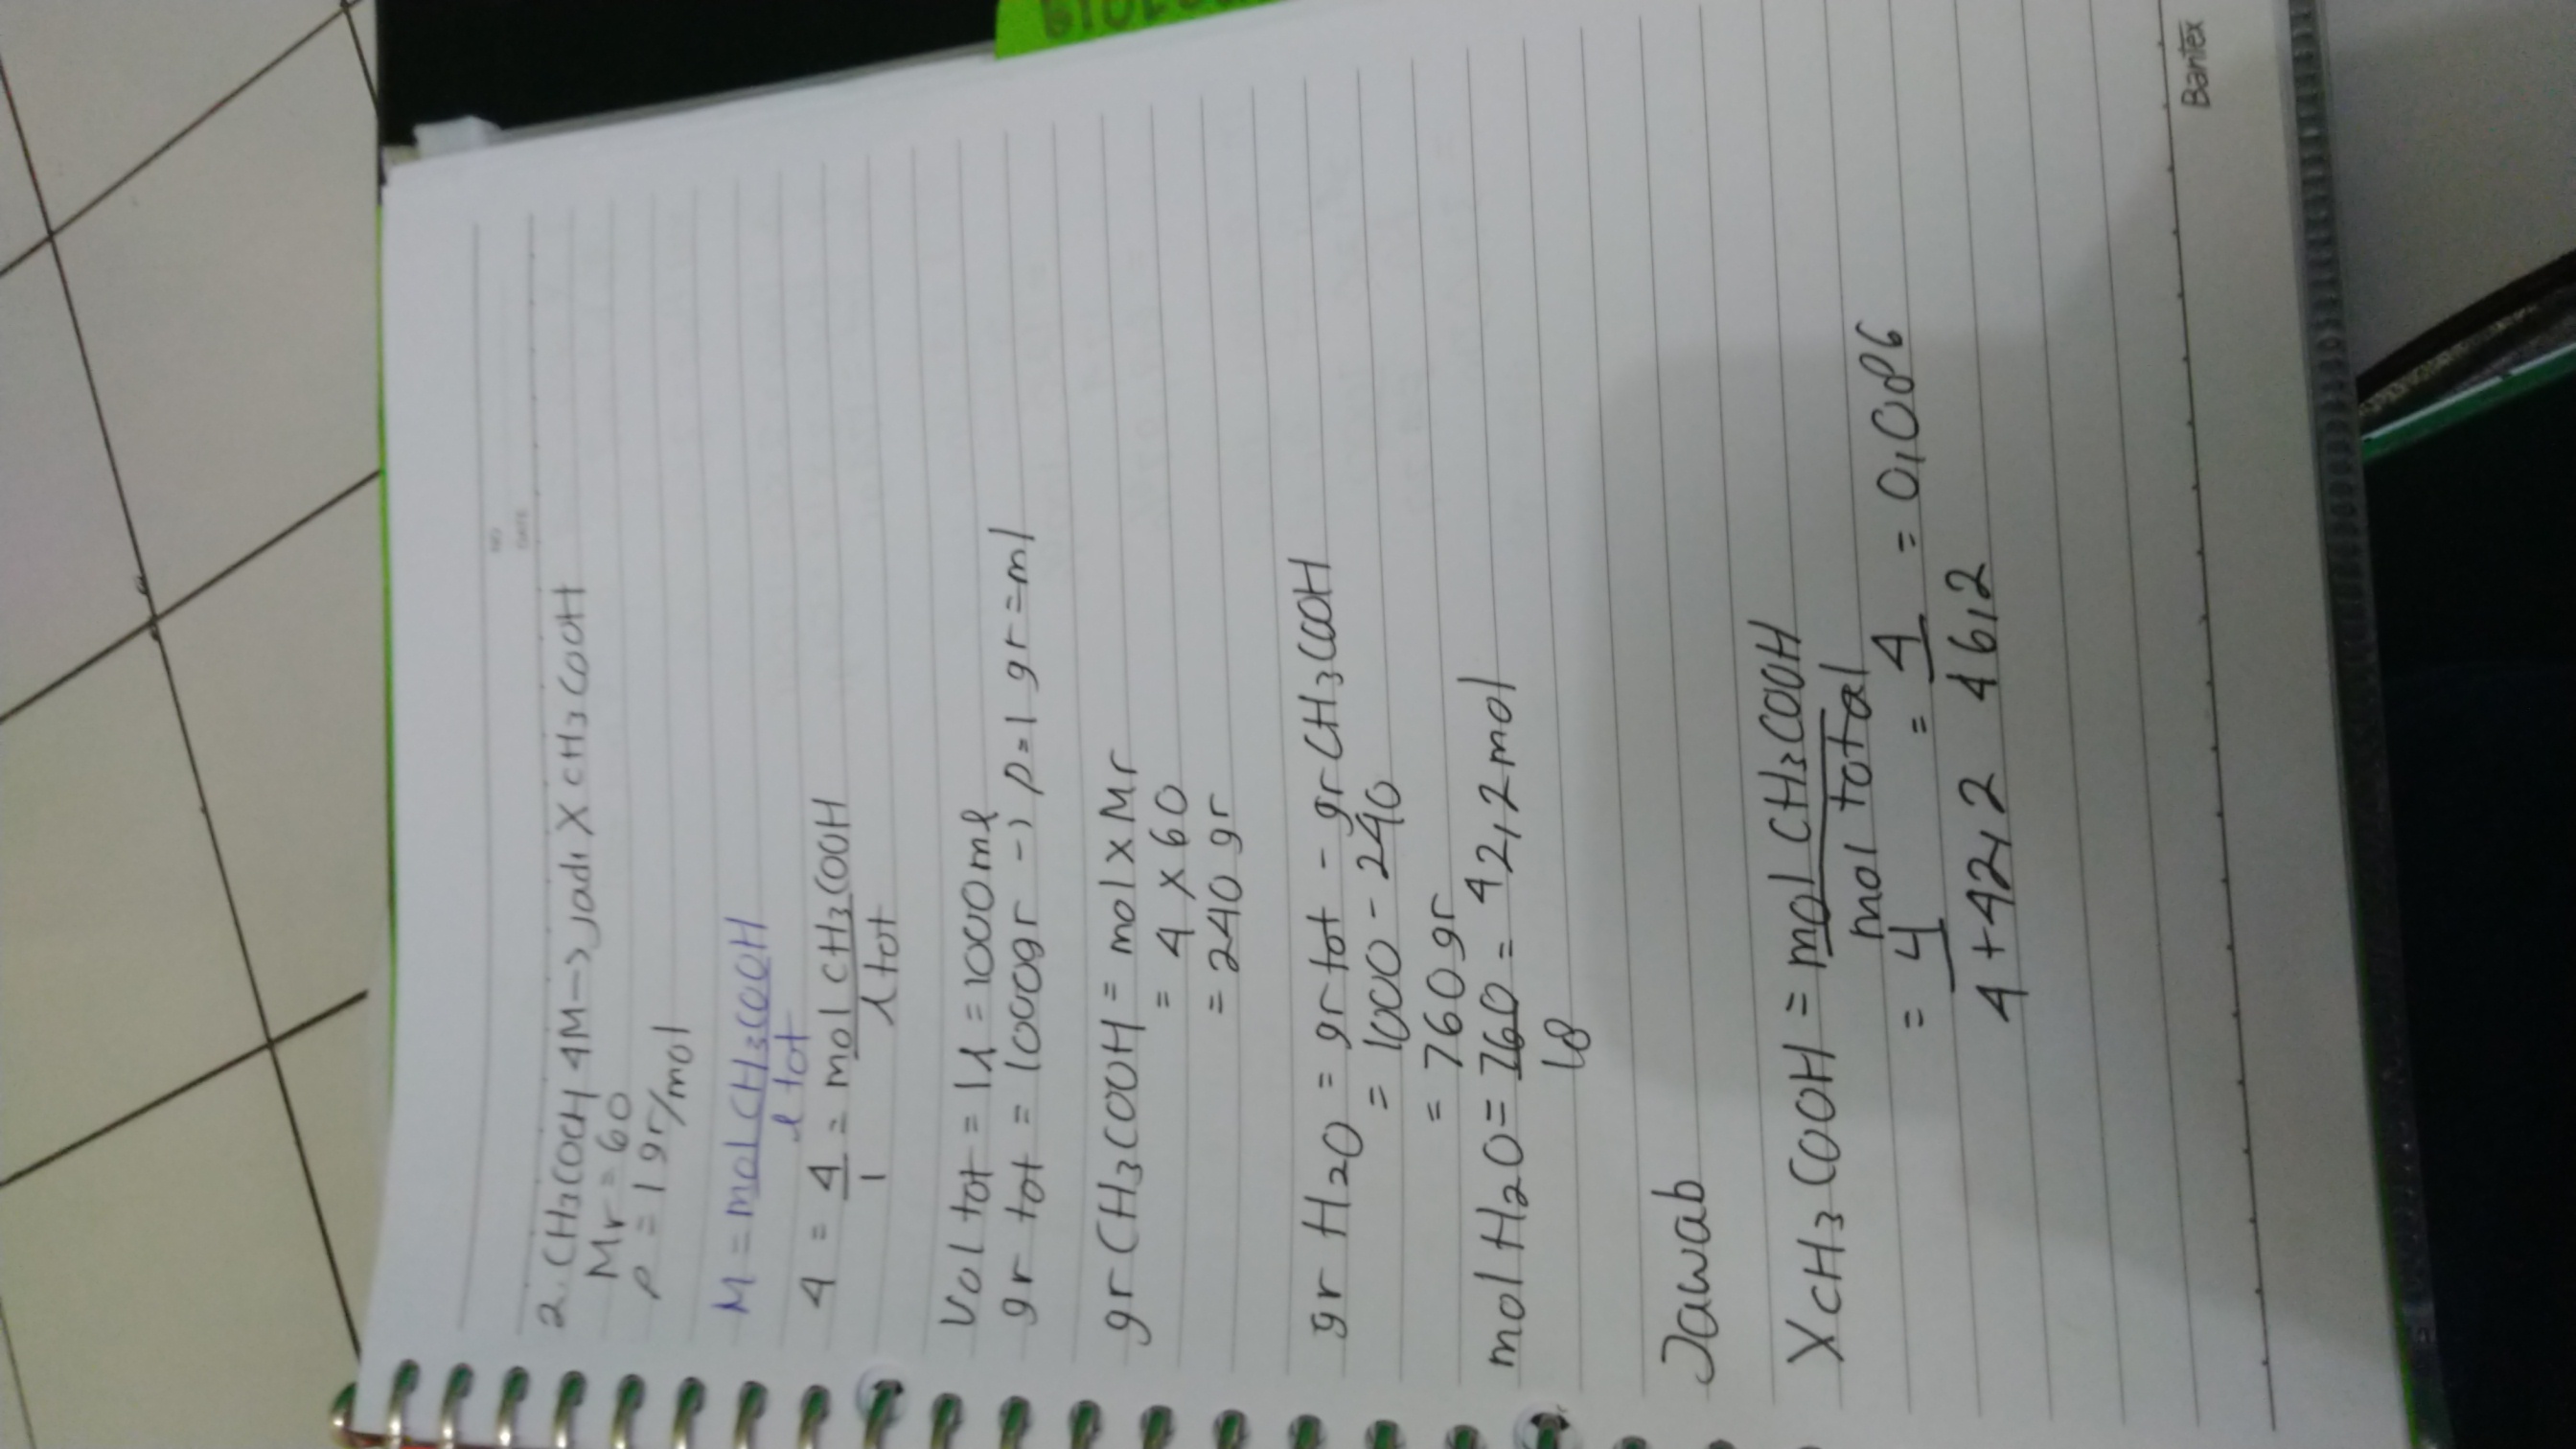 NO
DATE
2. CH3COOH 4M -> jadi X CH3COOH
Mr = 60
ρ = 1 gr/mol
M = mol CH3COOH
l tot
4 = 4 = mol CH3COOH
1 l tot
Vol tot = 1l = 1000ml
gr tot = 1000gr -> ρ=1 gr=ml
gr CH3COOH = mol x Mr
= 4 x 60
= 240 gr
gr H2O = gr tot - gr CH3COOH
= 1000 - 240
= 760 gr
mol H2O = 760 = 42,2 mol
18
Jawab
X CH3COOH = mol CH3COOH
mol total
= 4 = 4 = 0,086
4+42,2 46,2
Bantex